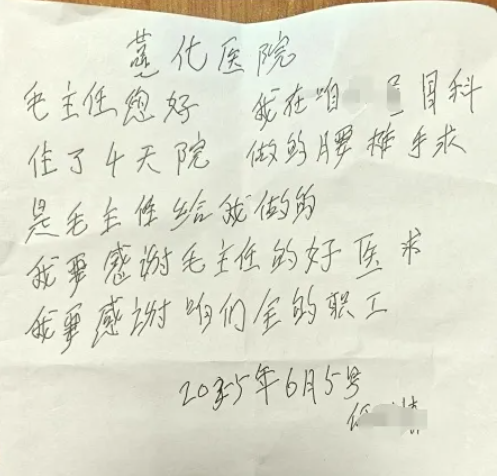 化医院
毛主任您好 我在咱 骨科
住了4天院 做的腰椎手术
是毛主任给我做的
我要感谢毛主任的好医术
我要感谢咱们全的职工
2025年6月5号